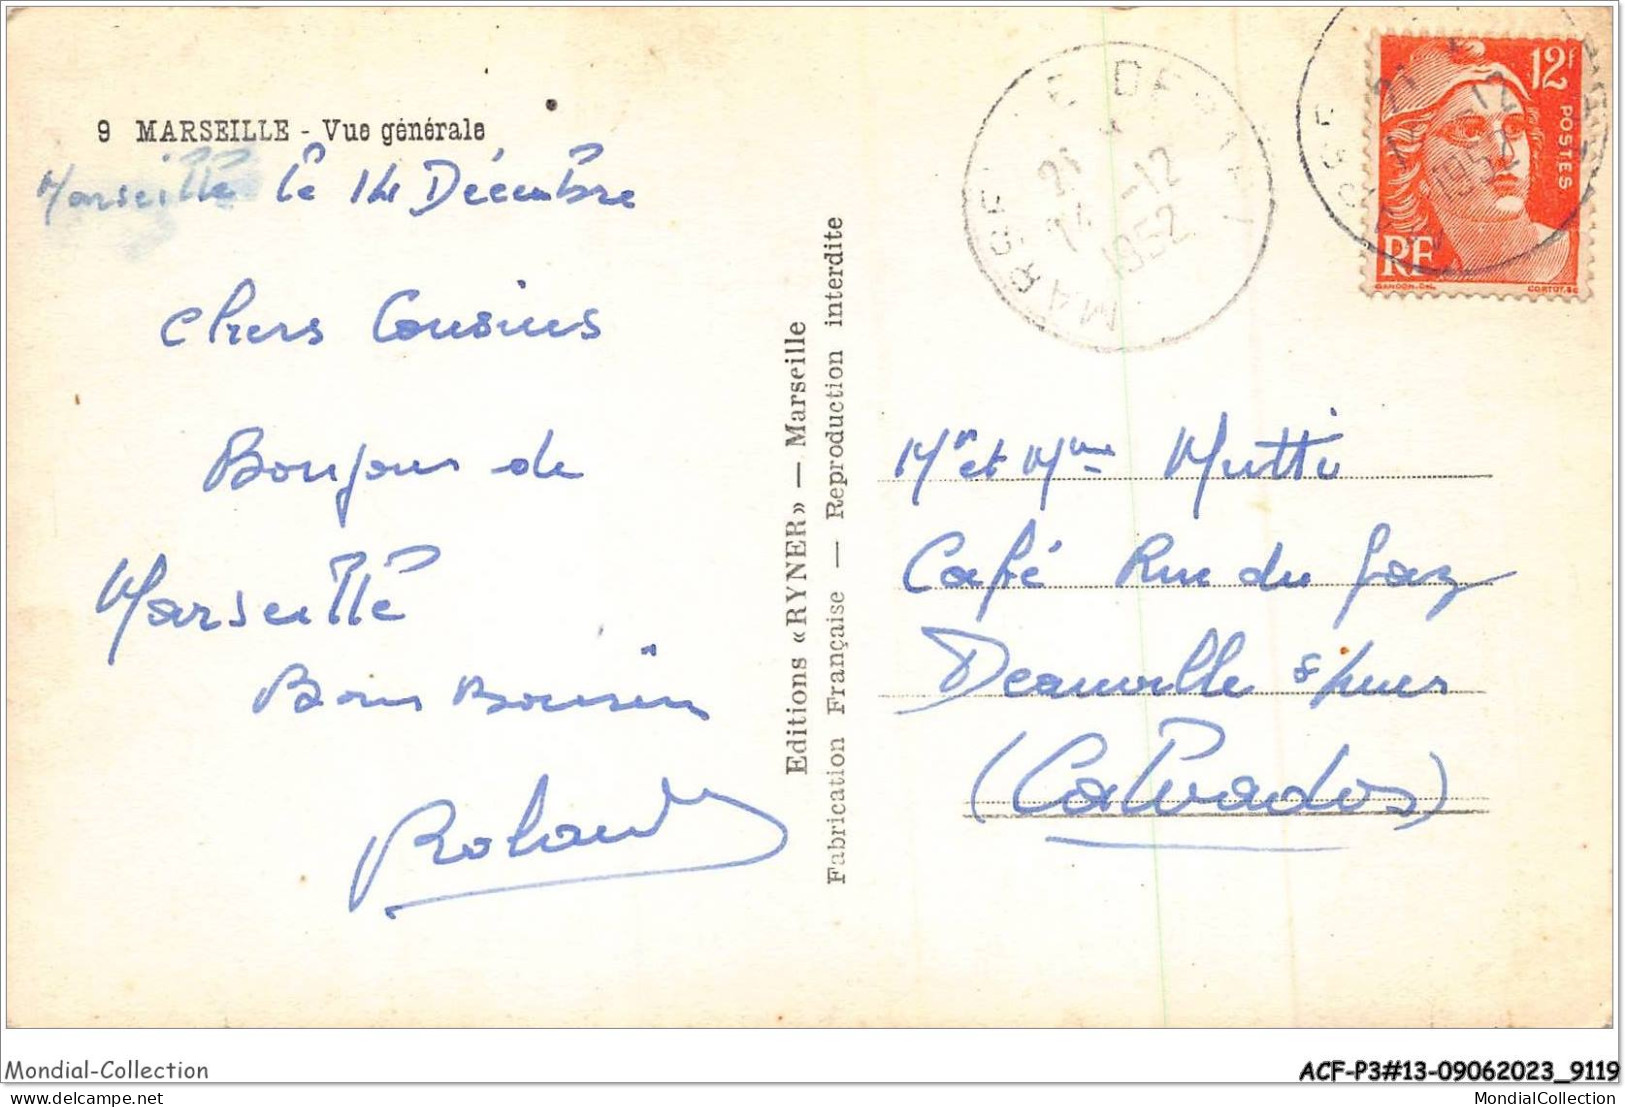 9 MARSEILLE - Vue générale
Marseille le 14 Décembre
Chers Cousins
Bonjour de
Marseille
Bons Baisers
Roland
Editions «RYNER» — Marseille
Fabrication Française — Reproduction interdite
MARSEILLE DEPART
21
14 -12
1952
21
-12
1952
12F
POSTES
RF
GANDON.DEL.
CORTOT.SC
Mr et Mme Mutti
Café Rue du Gaz
Deauville s/mer
(Calvados)
Mondial-Collection
ACF-P3#13-09062023_9119
Mondial-Collection.com
MondialCollection